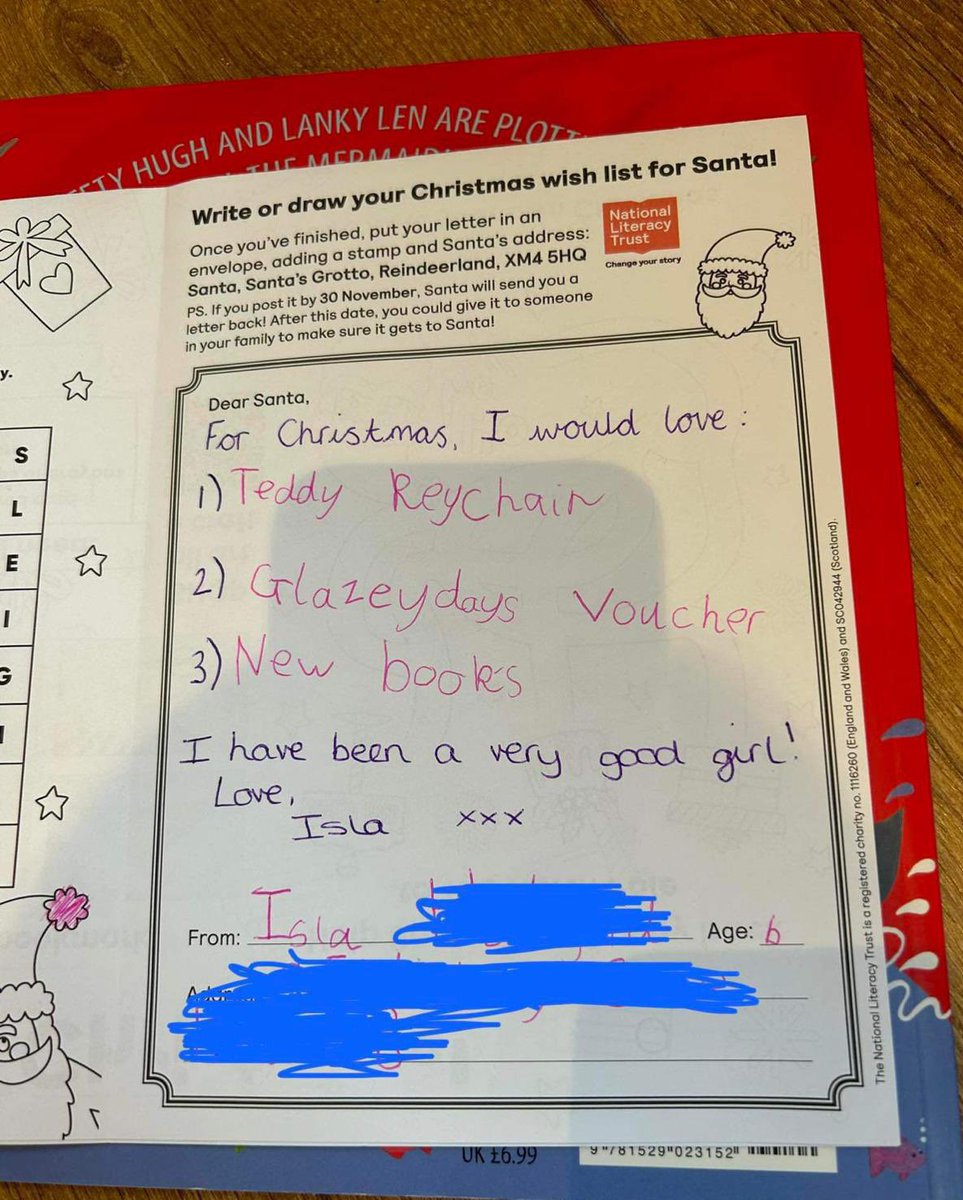 TY HUGH AND LANKY LEN ARE PLOTT
THE MERMAID
Write or draw your Christmas wish list for Santa!
Once you've finished, put your letter in an
envelope, adding a stamp and Santa's address:
Santa, Santa's Grotto, Reindeerland, XM4 5HQ
PS. If you post it by 30 November, Santa will send you a
letter back! After this date, you could give it to someone
in your family to make sure it gets to Santa!
National
Literacy
Trust
Change your story
y.
S
L
E
I
G
Dear Santa,
For Christmas, I would love:
1) Teddy Keychain
2) Glazeydays Voucher
3) New books
I have been a very good girl!
Love,
Isla xxx
From: Isla
Age: 6
The National Literacy Trust is a registered charity no. 1116260 (England and Wales) and SC042944 (Scotland).
UK £6.99
9 781529 023152